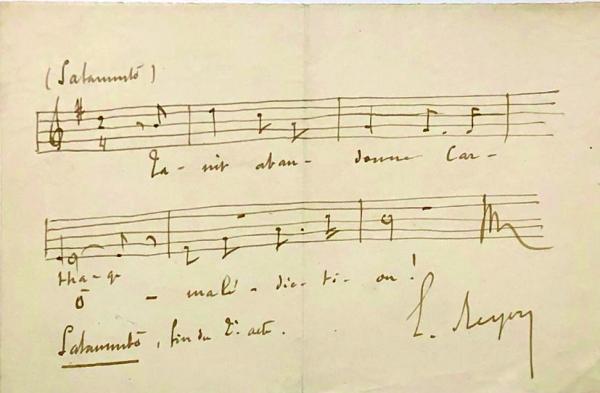 (Salammbô)
Ta - nit aban - donne Car -
tha - ge
Ô - malé - dic - ti - on !
Salammbô, fin du 2e acte.
E. Reyer